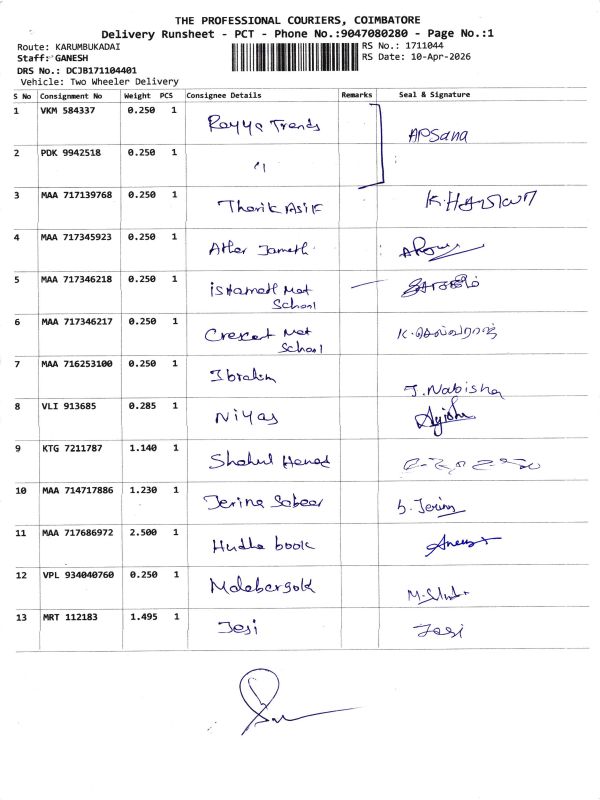 THE PROFESSIONAL COURIERS, COIMBATORE
Delivery Runsheet - PCT - Phone No.:9047080280 - Page No.:1
Route: KARUMBUKADAI RS No.: 1711044
Staff: GANESH RS Date: 10-Apr-2026
DRS No.: DCJB171104401
Vehicle: Two Wheeler Delivery
S No Consignment No Weight PCS Consignee Details Remarks Seal & Signature
1 VKM 584337 0.250 1 Rayya Trends APSana
2 PDK 9942518 0.250 1 "
3 MAA 717139768 0.250 1 Tharik Asik
4 MAA 717345923 0.250 1 Ather Jameth
5 MAA 717346218 0.250 1 Mat
School
6 MAA 717346217 0.250 1 Cresent Mat K. செல்வராஜ்
School
7 MAA 716253100 0.250 1 Ibrahim J. Nabisha
8 VLI 913685 0.285 1 Niyas Ayisha
9 KTG 7211787 1.140 1 Shahul
10 MAA 714717886 1.230 1 Jerina Sabeer
11 MAA 717686972 2.500 1 Hudha book
12 VPL 934040760 0.250 1 Malabargold
13 MRT 112183 1.495 1 Jesi Jesi